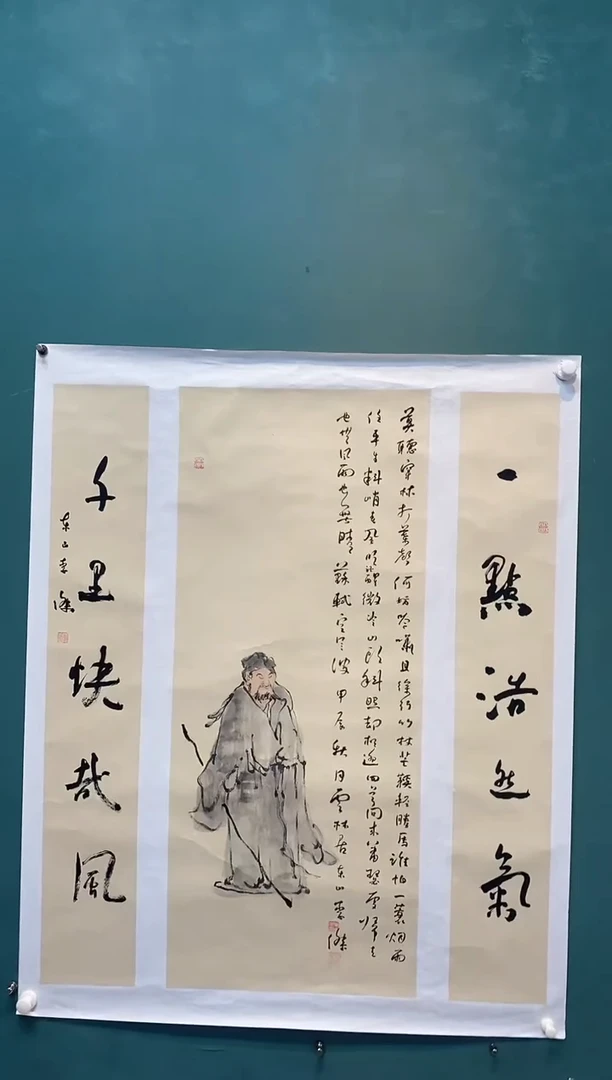 一點浩然氣
莫聽穿林打葉聲何妨吟嘯且徐行竹杖芒鞵輕勝馬誰怕一蓑烟雨
任平生料峭春風吹醒微冷山頭斜照却相迎回首向來蕭瑟處歸去
也無風雨也無晴蘇軾定風波甲辰秋月雲林居东山李傑
千里快哉風
东山李傑